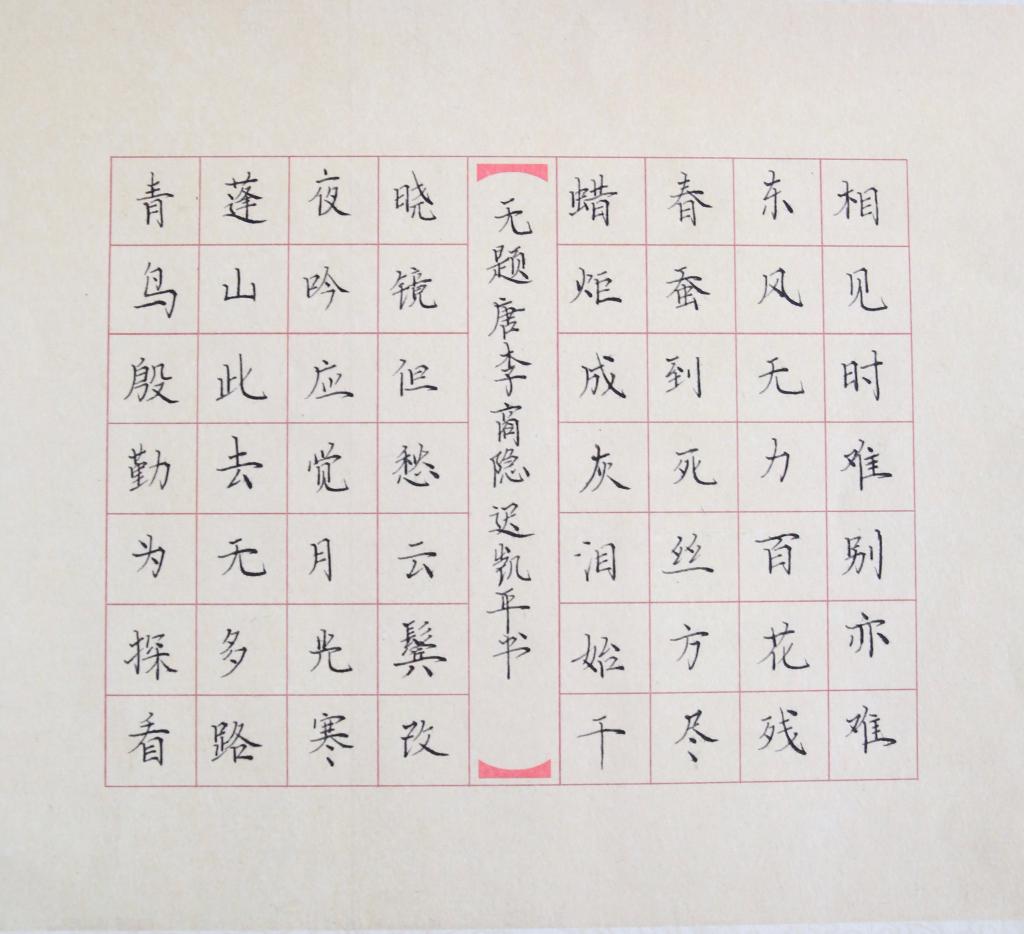 相见时难别亦难
东风无力百花残
春蚕到死丝方尽
蜡炬成灰泪始干
无题唐李商隐迟凯平书
晓镜但愁云鬓改
夜吟应觉月光寒
蓬山此去无多路
青鸟殷勤为探看